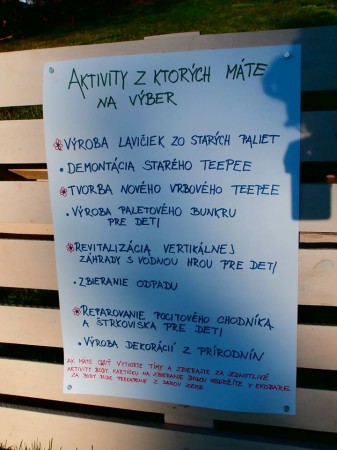 AKTIVITY Z KTORÝCH MÁTE
NA VÝBER
VÝROBA LAVIČIEK ZO STARÝCH PALIET
• DEMONTÁCIA STARÉHO TEEPEE
TVORBA NOVÉHO VRBOVÉHO TEEPEE
• VÝROBA PALETOVÉHO BUNKRU
PRE DETI
REVITALIZÁCIA VERTIKÁLNEJ
ZÁHRADY S VODNOU HROU PRE DETI
• ZBIERANIE ODPADU
REPAROVANIE POCITOVÉHO CHODNÍKA
A ŠTRKOVISKA PRE DETI
• VÝROBA DEKORÁCIÍ Z PRÍRODNÍN
AK MÁTE CHUŤ VYTVORTE TÍMY A ZBIERAJTE ZA JEDNOTLIVÉ
AKTIVITY BODY. KARTIČKU NA ZBIERANIE BODOV NÁJDETE V EKOBARE
ZA BODY BUDE PREKVAPENIE Z DAROV ZEME